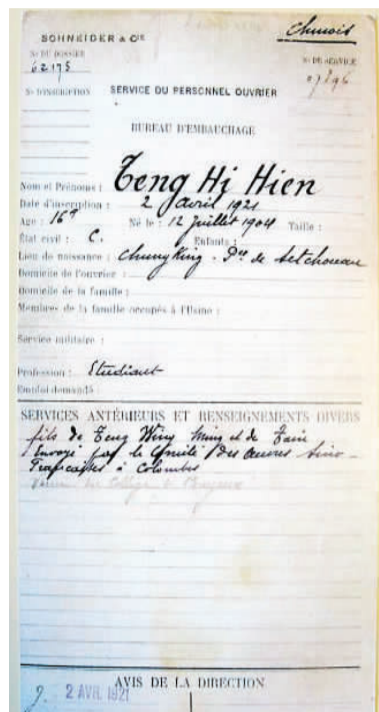 Chinois
SCHNEIDER & Cie
No DU DOSSIER
62175
No DE SERVICE
07396
No D'INSCRIPTION
SERVICE DU PERSONNEL OUVRIER
BUREAU D'EMBAUCHAGE
Nom et Prénoms : Teng Hi Hien
Date d'inscription : 2 avril 1921
Age : 16 a Né le : 12 Juillet 1904 Taille :
État civil : C. Enfants :
Lieu de naissance : Chung King - Pce de Setchouan
Domicile de l'ouvrier :
Domicile de la famille :
Membres de la famille occupés à l'Usine :
Service militaire :
Profession : Etudiant
Emploi demandé :
SERVICES ANTÉRIEURS ET RENSEIGNEMENTS DIVERS
fils de Teng Wing Ming et de
Envoyé par le Comité des Œuvres Sino-
Françaises à Colombes
du Collège de Bayeux
AVIS DE LA DIRECTION
2 AVR. 1921